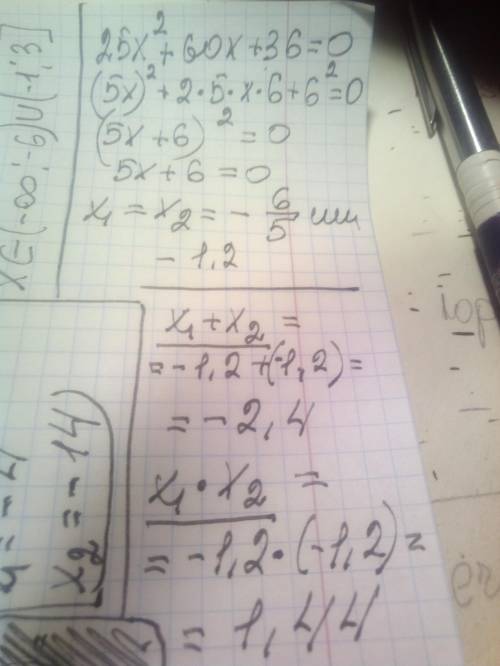 25x² + 60x + 36 = 0
(5x)² + 2·5·x·6 + 6² = 0
(5x + 6)² = 0
5x + 6 = 0
x₁ = x₂ = - 6/5 или
- 1,2
x₁ + x₂ =
= -1,2 + (-1,2) =
= - 2,4
x₁ · x₂ =
= -1,2 · (-1,2) =
= 1,44
x ∈ (-∞; -6) ∪ (-1; 3]
x₂ = -14